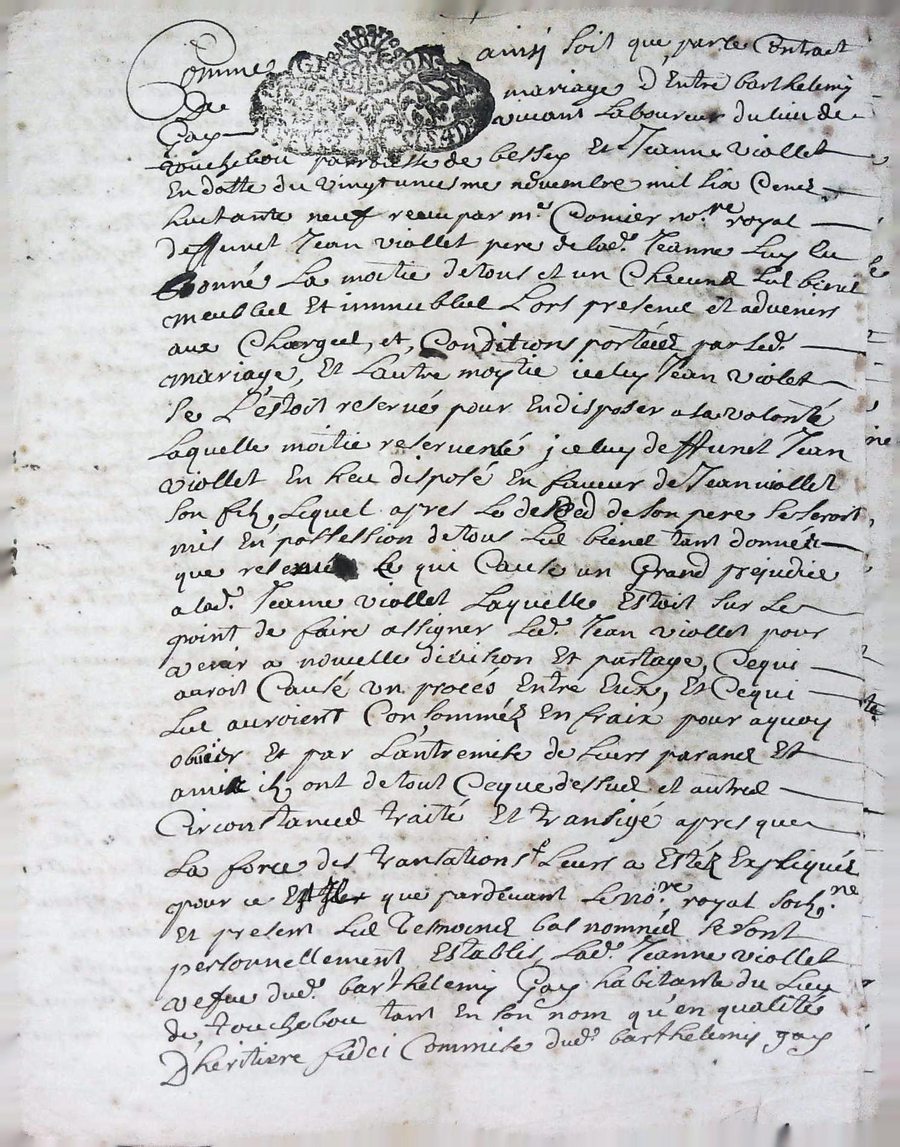 Comme ainsy soit que par le Contract
De mariage D'Entre barthelemy
Gay vivant Laboureur du lieu de
touchebou parroisse de bessey Et Jeanne viollet
En datte du vingtuniesme novembre mil six Cens
huictante neuf receu par me Comier nore royal
deffunct Jean viollet pere de lade Jeanne Luy eu
donné La moitie de tous et un Chacuns ses biens
meubles Et immeubles Lors presens et advenirs
aux Charges, et, Conditions portées par led.
mariage, Et Lautre moytie iceluy Jean violet
se L'estoit reservé pour En disposer a sa volonté
Laquelle moitie reservée jceluy deffunct Jean
viollet En heu disposé En faveur de Jean viollet
son fils, Lequel apres Le deced de son pere se seroit
mis En possession de tous Les biens tant donnés
que reservés Le qui Cause un Grand prejudice
a lade Jeanne viollet Laquelle Estoit sur Le
point de faire assigner Led. Jean viollet pour
venir a nouvelle division Et partage, Cequi
auroit Causé un procés Entre Eux, Et Cequi
Les auroient Consommés En fraix pour aquoy
obvier Et par Lantremise de Leurs parans Et
amis ils ont de tout Ceque dessus et autres
Circonstances traité Et transigé apres que
La force des transations Leurs a Estéz Expliqués
pour ce que pardevant Le nore royal sousne
Et present Les Tesmoins bas nommés se sont
personnellement Establis Lade Jeanne viollet
vefve dud. barthelemy Gay habitante du Lieu
de touchebou tant En son nom qu'en qualité
D'heritiere fidei Commise dud. barthelemy gay